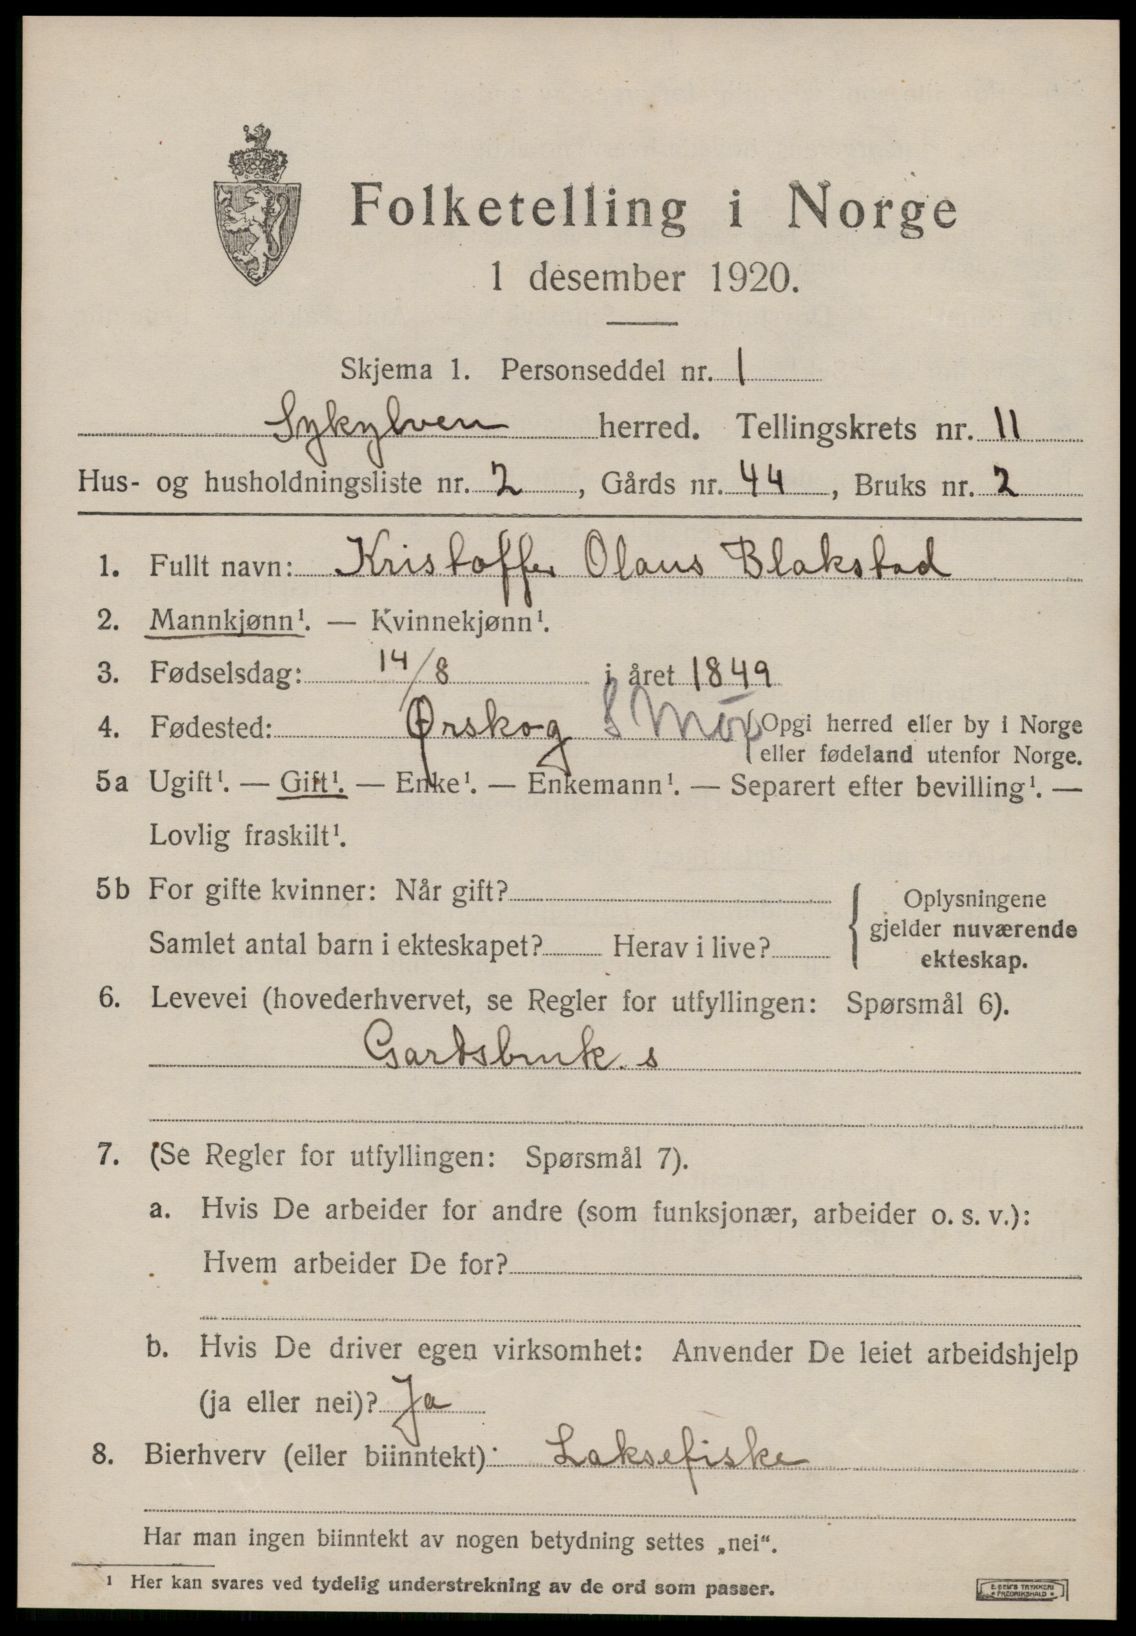 Folketelling i Norge
1 desember 1920.
Skjema 1. Personseddel nr. 1
Sykylven herred. Tellingskrets nr. 11
Hus- og husholdningsliste nr. 2, Gårds nr. 44, Bruks nr. 2
1. Fullt navn: Kristoffer Olaus Blakstad
2. Mannkjønn¹. — Kvinnekjønn¹.
3. Fødselsdag: 14/8 i året 1849
4. Fødested: Ørskog S Mør (Opgi herred eller by i Norge
eller fødeland utenfor Norge.
5a Ugift¹. — Gift¹. — Enke¹. — Enkemann¹. — Separert efter bevilling¹. —
Lovlig fraskilt¹.
5b For gifte kvinner: Når gift?
Samlet antal barn i ekteskapet? Herav i live?
{ Oplysningene
gjelder nuværende
ekteskap.
6. Levevei (hovederhvervet, se Regler for utfyllingen: Spørsmål 6).
Gardsbruk. s
7. (Se Regler for utfyllingen: Spørsmål 7).
a. Hvis De arbeider for andre (som funksjonær, arbeider o. s. v.):
Hvem arbeider De for?
b. Hvis De driver egen virksomhet: Anvender De leiet arbeidshjelp
(ja eller nei)? Ja
8. Bierhverv (eller biinntekt): Laksefiske
Har man ingen biinntekt av nogen betydning settes „nei“.
¹ Her kan svares ved tydelig understrekning av de ord som passer.
E. SEM'S TRYKKERI
FREDRIKSHALD